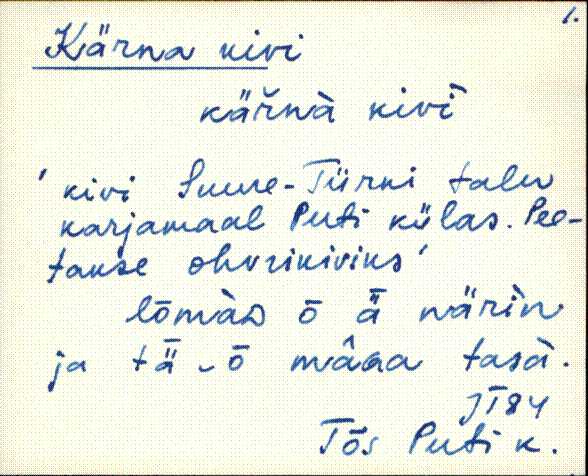 1.
Kärna kivi
käřnà kivì̮
' kivi Suure-Türni talu
karjamaal Puti külas. Pee-
takse ohvrikiviks'
lōmàD ō ǟ närìn
ja tǟ ō mâGa tasà.
JT84
Tõs Puti k.